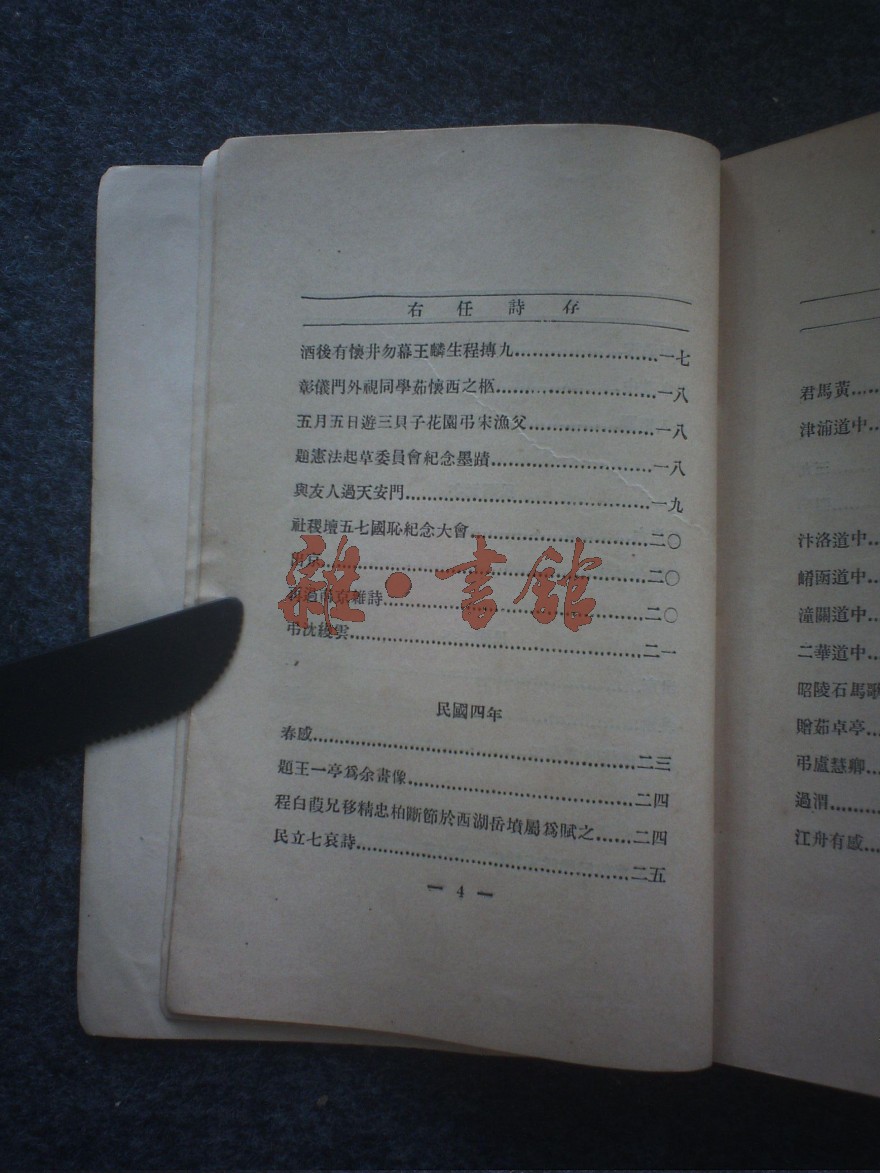 右任詩存
酒後有懷井勿幕王麟生程摶九……一七
彰儀門外視同學茹懷西之柩……一八
五月五日遊三貝子花園弔宋漁父……一八
題憲法起草委員會紀念墨蹟……一八
與友人過天安門……一九
社稷壇五七國恥紀念大會……二〇
出京……二〇
再過南京雜詩……二〇
弔沈縵雲……二一
民國四年
春感……二三
題王一亭爲余畫像……二四
程白葭兄移精忠柏斷節於西湖岳墳屬爲賦之……二四
民立七哀詩……二五
— 4 —
君馬黃……
津浦道中
汴洛道中
崤函道中
潼關道中
二華道中
昭陵石馬歌
贈茹卓亭
弔盧慧卿
過渭
江舟有感
雜·書館